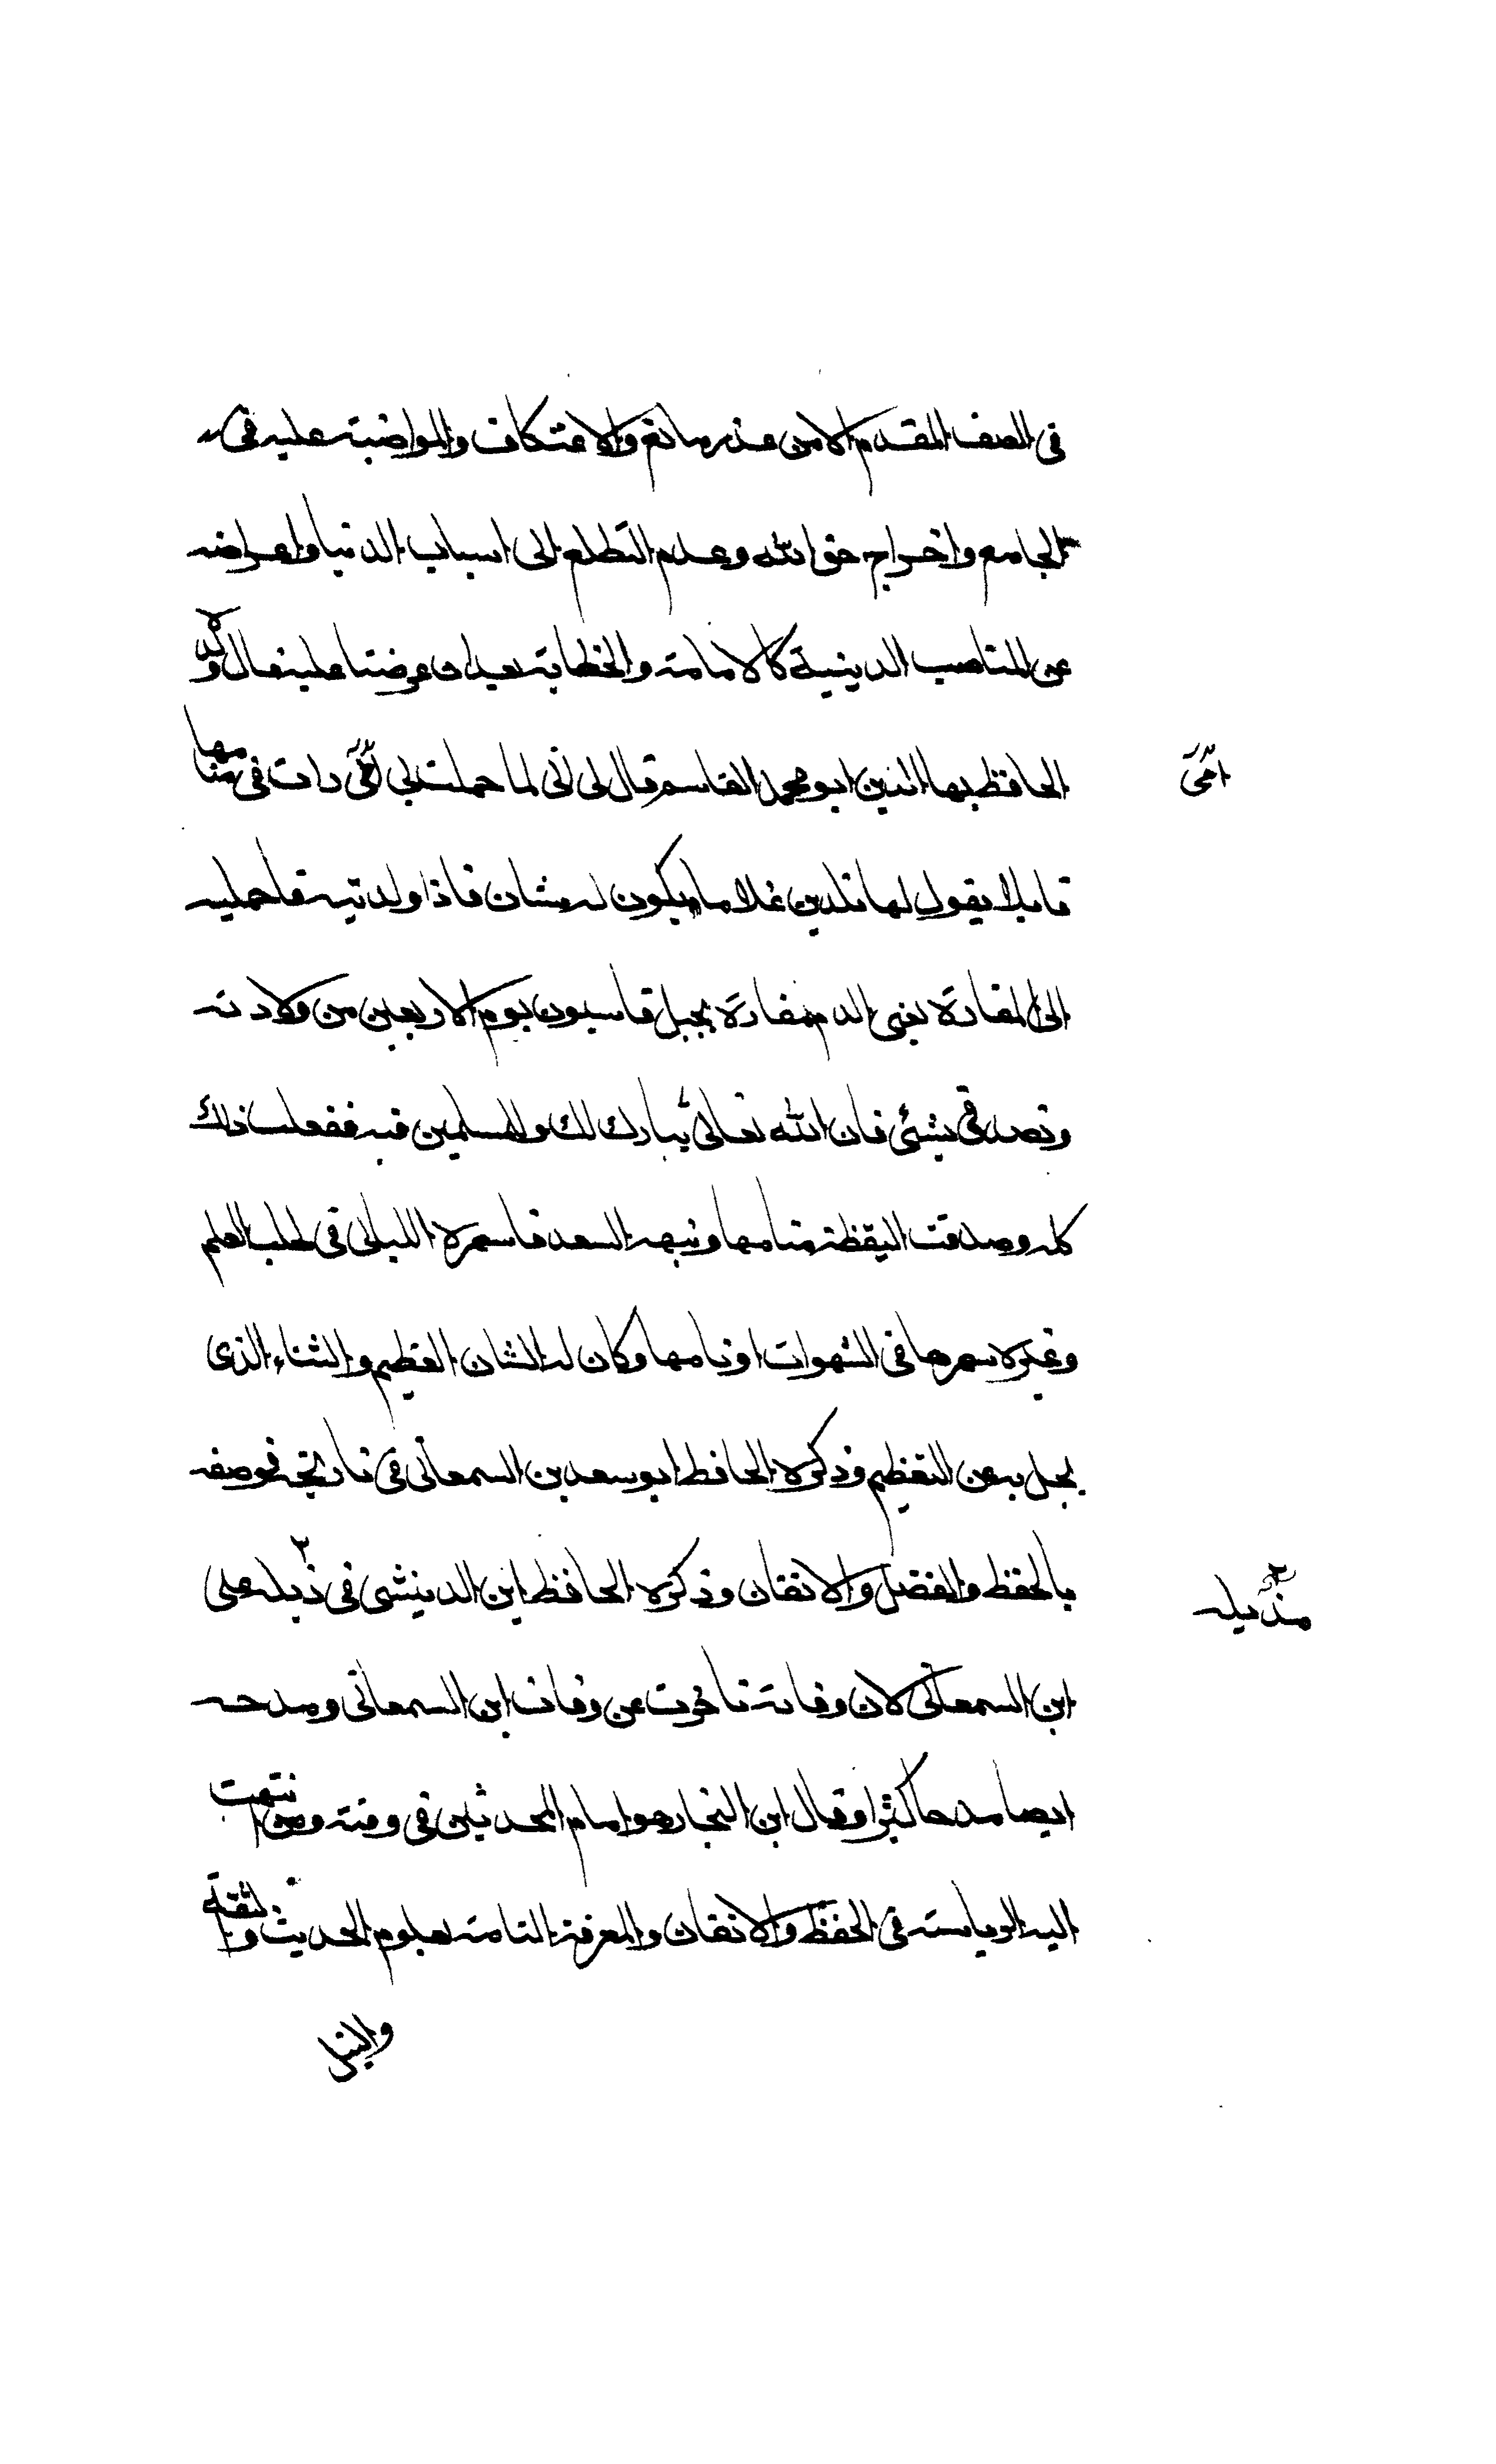 في الصف المقدم الا من عذر مانع والاعتكاف والمواضبة عليه في
الجامع واخراج حق الله وعدم التطلع الى اسباب الدنيا واعراضه
عن المناصب الدينية كالامامة والخطابة بعد ان عرضتا عليه قال ولده
الحافظ بها الدين ابو محمد القاسم قال لي ابي لما حملت بي امي رات في منامها
امي
قايلا يقول لها تلدين غلاما يكون له شان فاذا ولدتيه فاحمليه
الى المغارة يعني الدم مغارة بجبل قاسيون يوم الاربعين من ولادته
وتصدقي بشئ فان الله تعالى يبارك لك وللمسلمين فيه ففعلت ذلك
كله وصدقت اليقظة منامها ونبهه السعد فاسهره الليالي في طلب العلم
وغيره سهرها في الشهوات او نامها وكان له الشان العظيم والثناء الذي
يجل به عن التعظيم وذكره الحافظ ابو سعد بن السمعاني في تاريخه فوصفه
بالحفظ والفضل والاتقان وذكره الحافظ ابن الدبيثي في ذيله على
مذيله
ابن السمعاني لان وفاته تاخرت عن وفات ابن السمعاني ومدحه
ايضا مدحا كثيرا وقال ابن النجار هو امام المحدثين في وقته ومن انتهت
اليه الرياسة في الحفظ والاتقان والمعرفة التامة بعلوم الحديث والثقة
والنبل